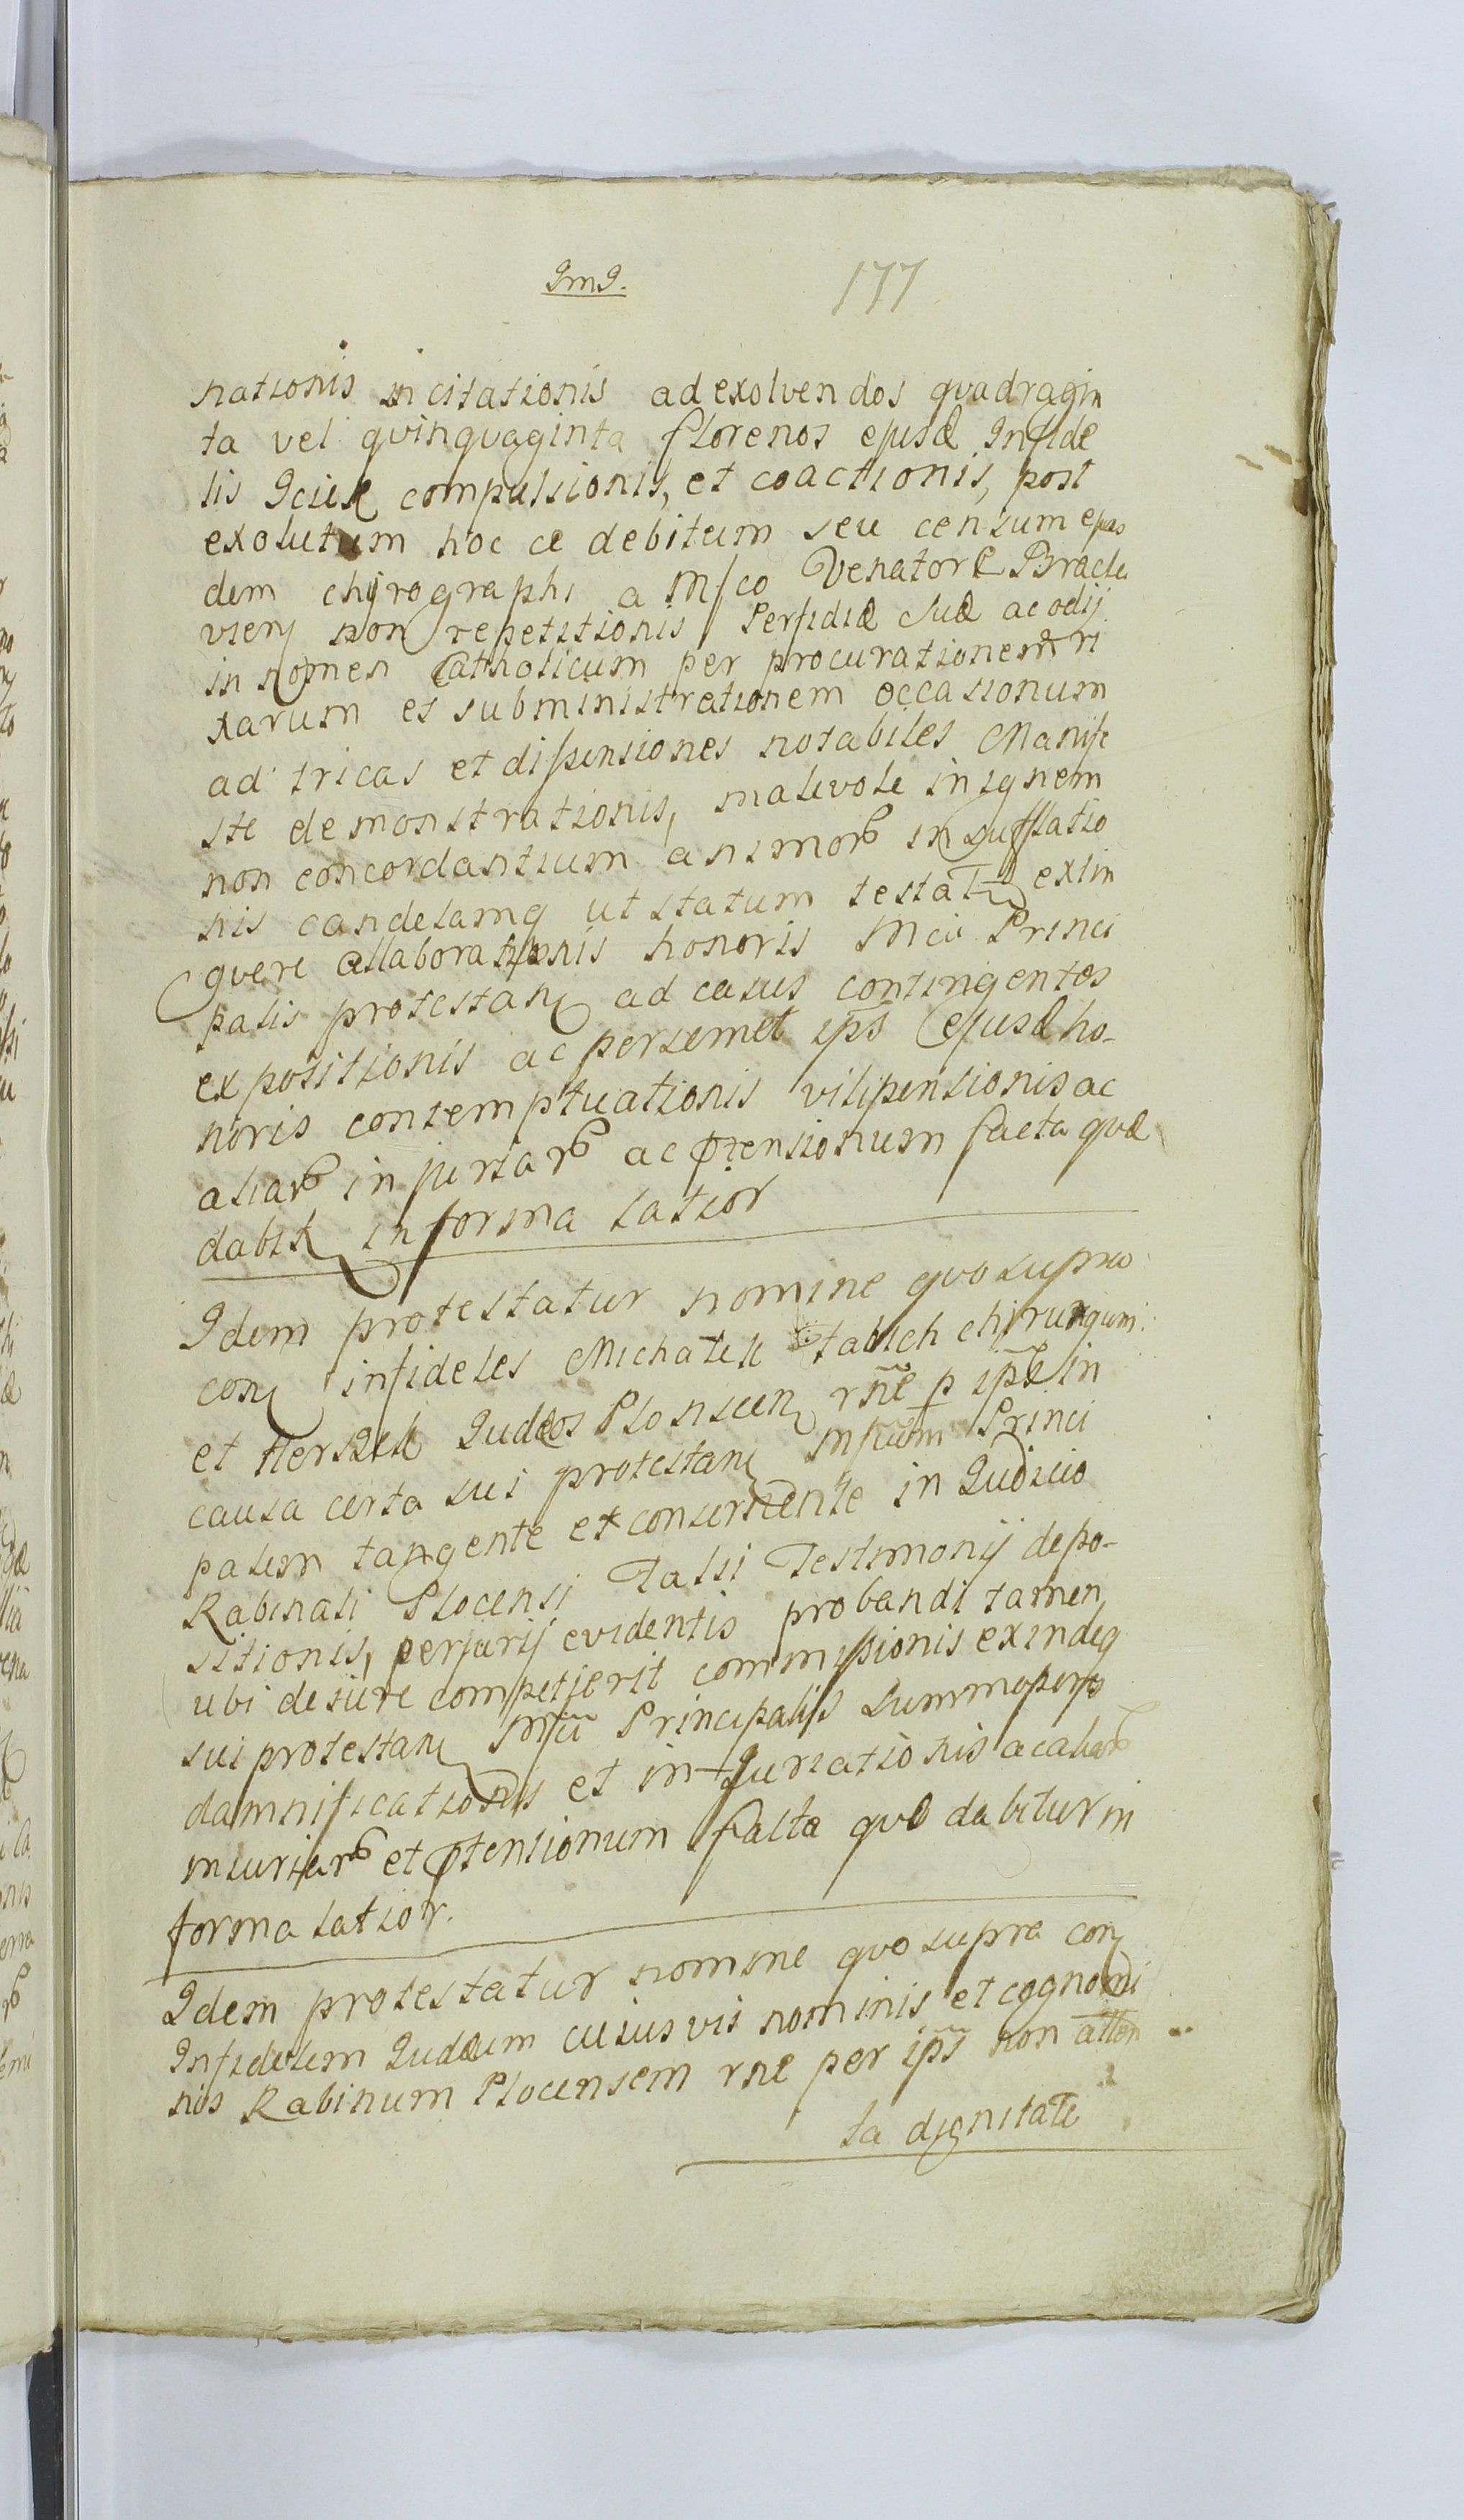 JmJ.
177
nationis incitationis ad exolvendos quadragin
ta vel quinquaginta florenos ejusd Infide
lis Iciek compulsionis, et coactionis, post
exolutum hoc ce debitum seu censum ejus
dem chyrographi a Mfco Venatore Bracla
vien non repetitionis Perfidiæ Suæ ac odij
in nomen Catholicum per procurationem ri
xarum et subministrationem occasionum
ad tricas et dispensiones notabiles Manife
ste demonstrationis, malevole in ignem
non concordantium animorb insufflatio
nis candelamq ut statum testat exlin
guere allaborationis honoris Mci Princi
palis protestan ad casus contingentes
expositionis ac persemet ips ejusd ho-
noris contemptuationis vilipensionis ac
aliarb injuriarb ac ptensionum facta quæ
dabit in forma latior
Idem protestatur nomine quo supra
con infideles Michałek Falsich chirurgum
et Herszek Judæos Plonscen rñe p ipse in
causa certa sui protestan Mfcum Princi
palem tangente et concernente in Judicio
Rabinali Plocensi Falsi Testimonij depo-
sitionis, perjurij evidentis probandi tamen
ubi de jure competierit commissionis exindeq
sui protestan Mfci Principalis summopere
damnificationis et injuriationis ac aliarb
injuriarb et ptensionum facta quæ dabitur in
forma latior.
Idem protestatur nomine quo supra con
Infidelem Judæum cujusvis nominis et cognomi
nis Rabinum Plocensem rne per ips non atten
ta dignitate